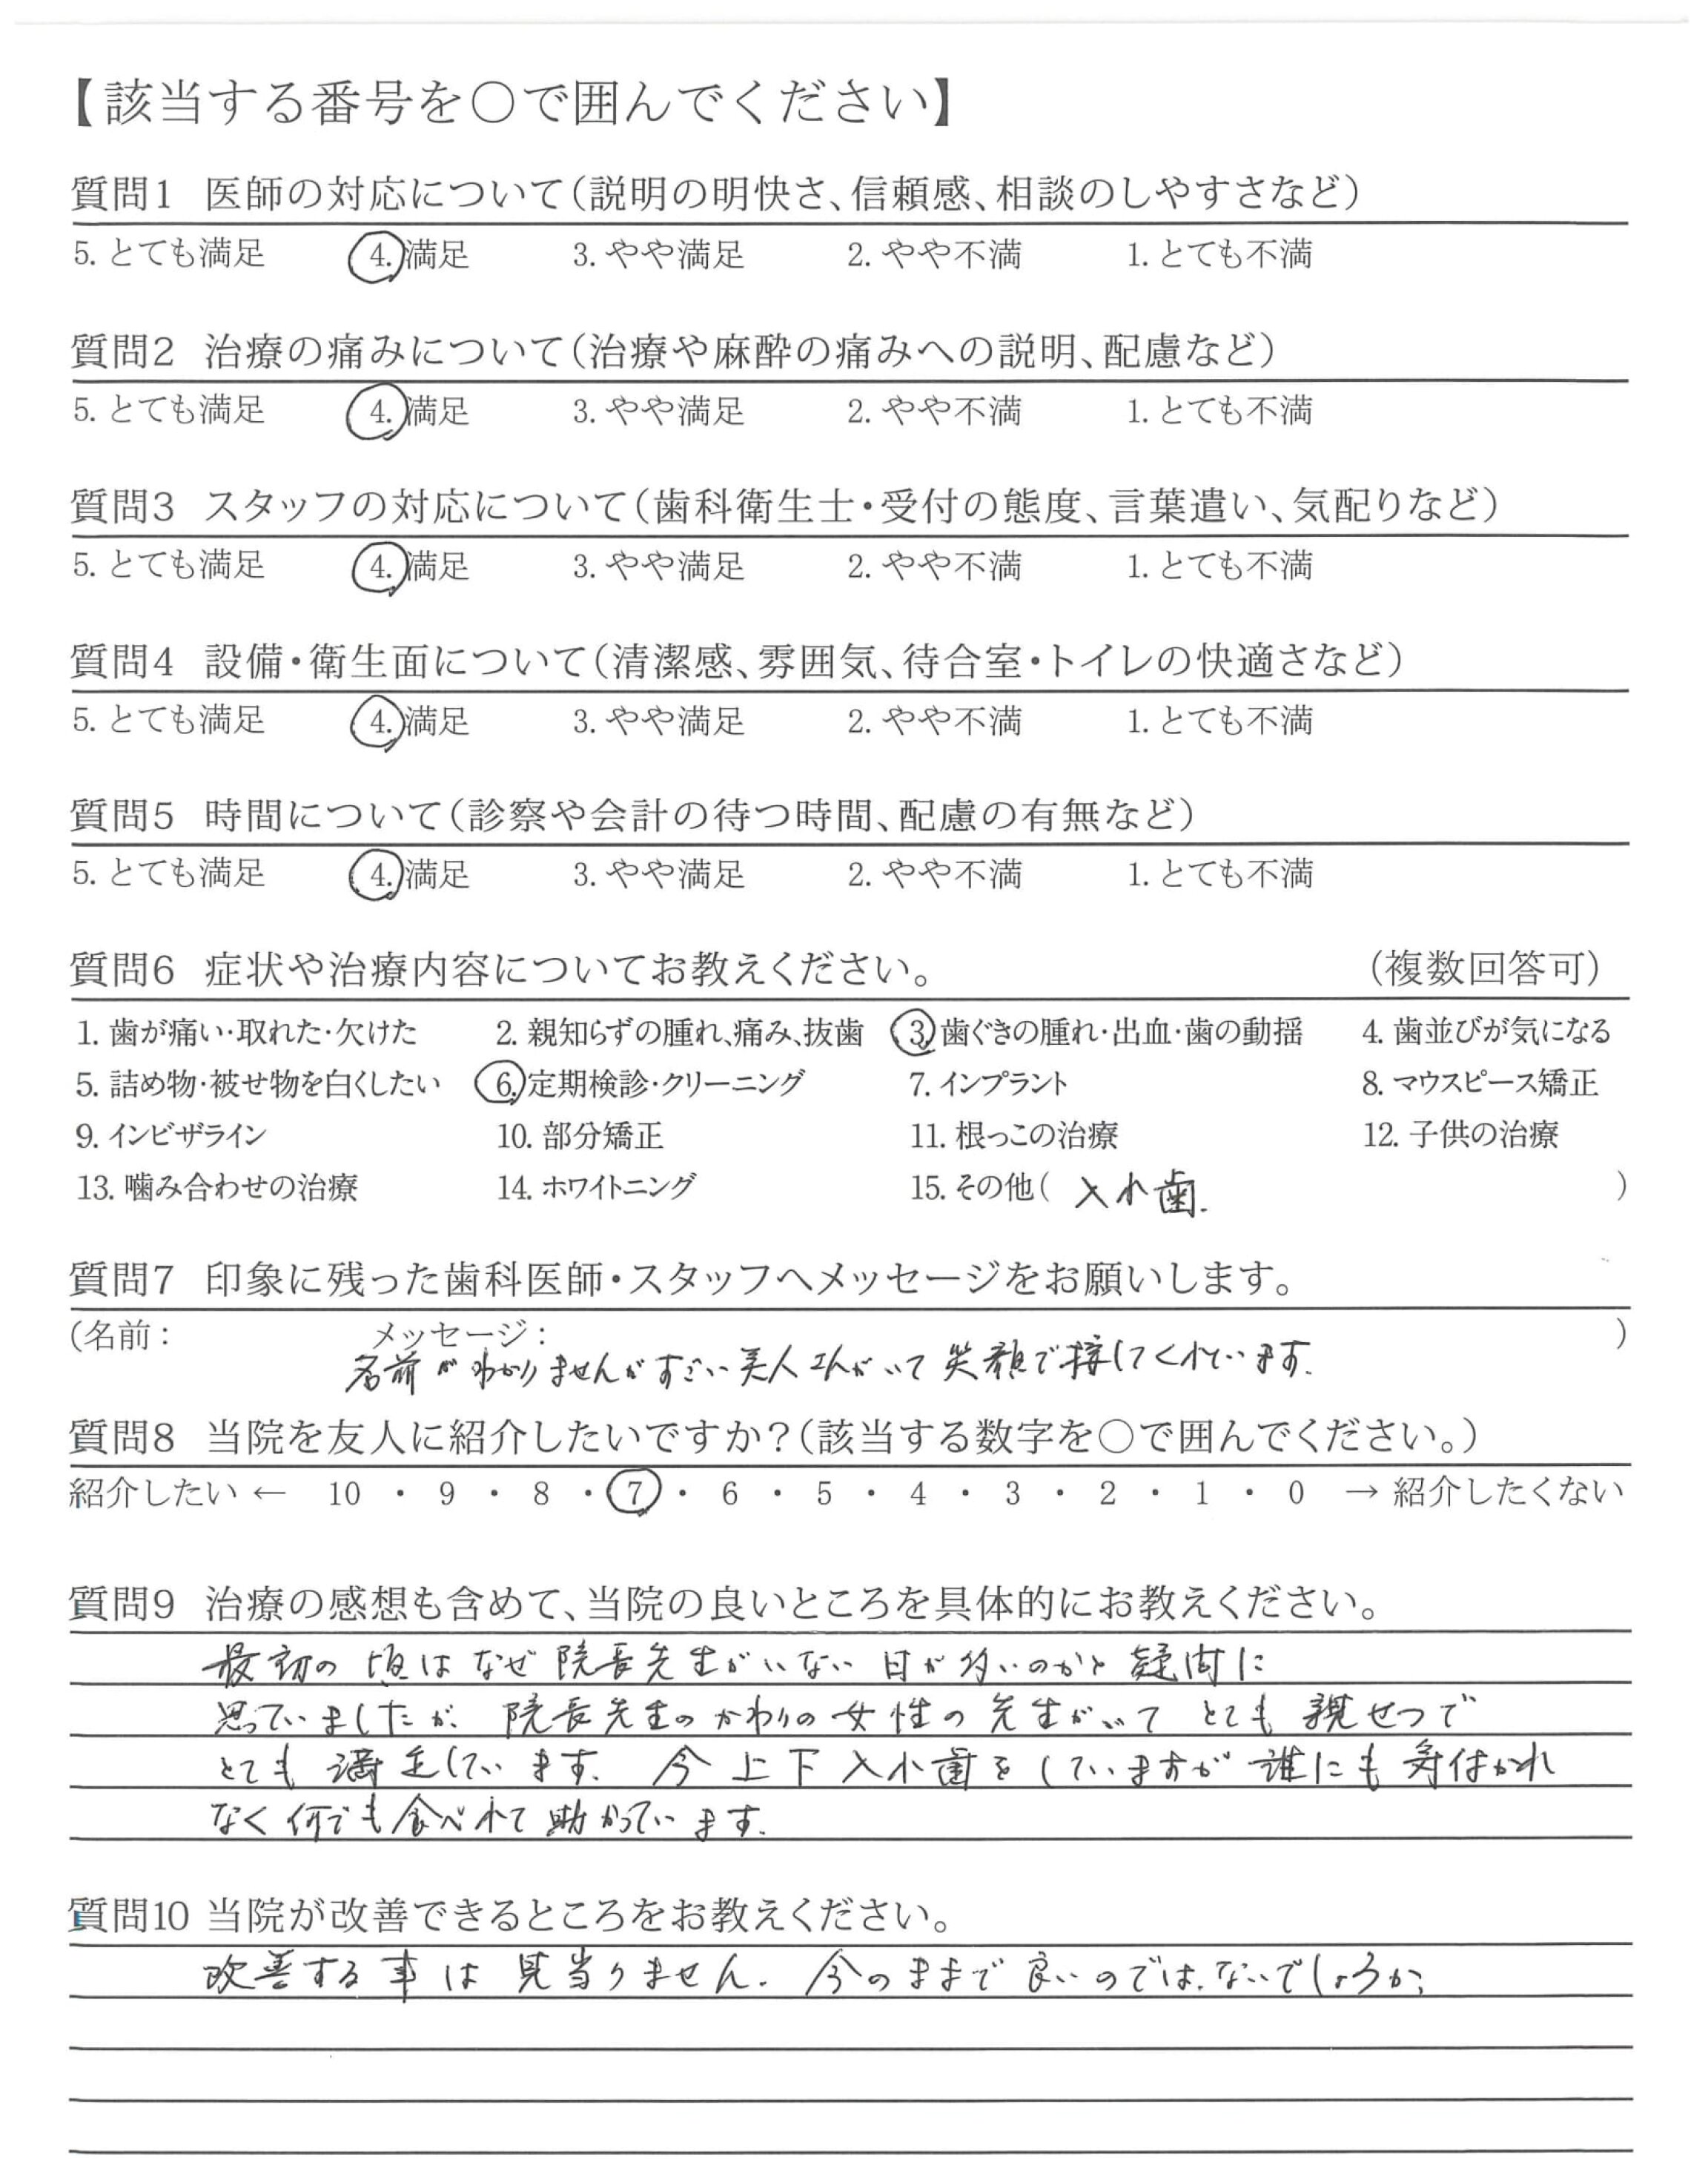 【該当する番号を○で囲んでください】
質問1 医師の対応について(説明の明快さ、信頼感、相談のしやすさなど)
5. とても満足 4. 満足 3. やや満足 2. やや不満 1. とても不満
質問2 治療の痛みについて(治療や麻酔の痛みへの説明、配慮など)
5. とても満足 4. 満足 3. やや満足 2. やや不満 1. とても不満
質問3 スタッフの対応について(歯科衛生士・受付の態度、言葉遣い、気配りなど)
5. とても満足 4. 満足 3. やや満足 2. やや不満 1. とても不満
質問4 設備・衛生面について(清潔感、雰囲気、待合室・トイレの快適さなど)
5. とても満足 4. 満足 3. やや満足 2. やや不満 1. とても不満
質問5 時間について(診察や会計の待つ時間、配慮の有無など)
5. とても満足 4. 満足 3. やや満足 2. やや不満 1. とても不満
質問6 症状や治療内容についてお教えください。 (複数回答可)
1. 歯が痛い・取れた・欠けた 2. 親知らずの腫れ、痛み、抜歯 3. 歯ぐきの腫れ・出血・歯の動揺 4. 歯並びが気になる
5. 詰め物・被せ物を白くしたい 6. 定期検診・クリーニング 7. インプラント 8. マウスピース矯正
9. インビザライン 10. 部分矯正 11. 根っこの治療 12. 子供の治療
13. 噛み合わせの治療 14. ホワイトニング 15. その他( 入れ歯. )
質問7 印象に残った歯科医師・スタッフへメッセージをお願いします。
(名前: メッセージ: )
名前がわかりませんがすごい美人さんがいて笑顔で接してくれています.
質問8 当院を友人に紹介したいですか?(該当する数字を○で囲んでください。)
紹介したい ← 10 ・ 9 ・ 8 ・ 7 ・ 6 ・ 5 ・ 4 ・ 3 ・ 2 ・ 1 ・ 0 → 紹介したくない
質問9 治療の感想も含めて、当院の良いところを具体的にお教えください。
最初の頃はなぜ院長先生がいない日が多いのかと疑問に
思っていましたが、院長先生のかわりの女性の先生がいてとても親せつで
とても満足しています. 今上下入れ歯をしていますが誰にも気付かれ
なく何でも食べれて助かっています.
質問10 当院が改善できるところをお教えください。
改善する事は見当りません. 今のままで良いのでは、ないでしょうか、